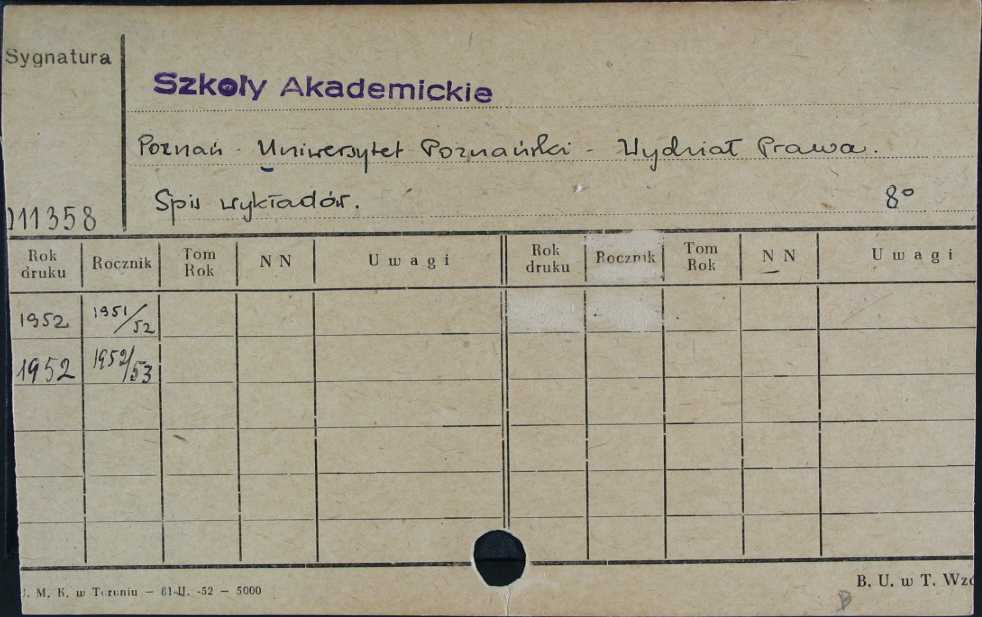 Sygnatura
Szkoły Akademickie
Poznań - Uniwersytet Poznański - Wydział Prawa.
Spis wykładów. 8°
011358
Rok druku Rocznik Tom Rok N N Uwagi Rok druku Rocznik Tom Rok N N Uwagi
1952 1951/52
1952 1952/53
M. K. w Toruniu — -52 — 5000
B. U. w T.